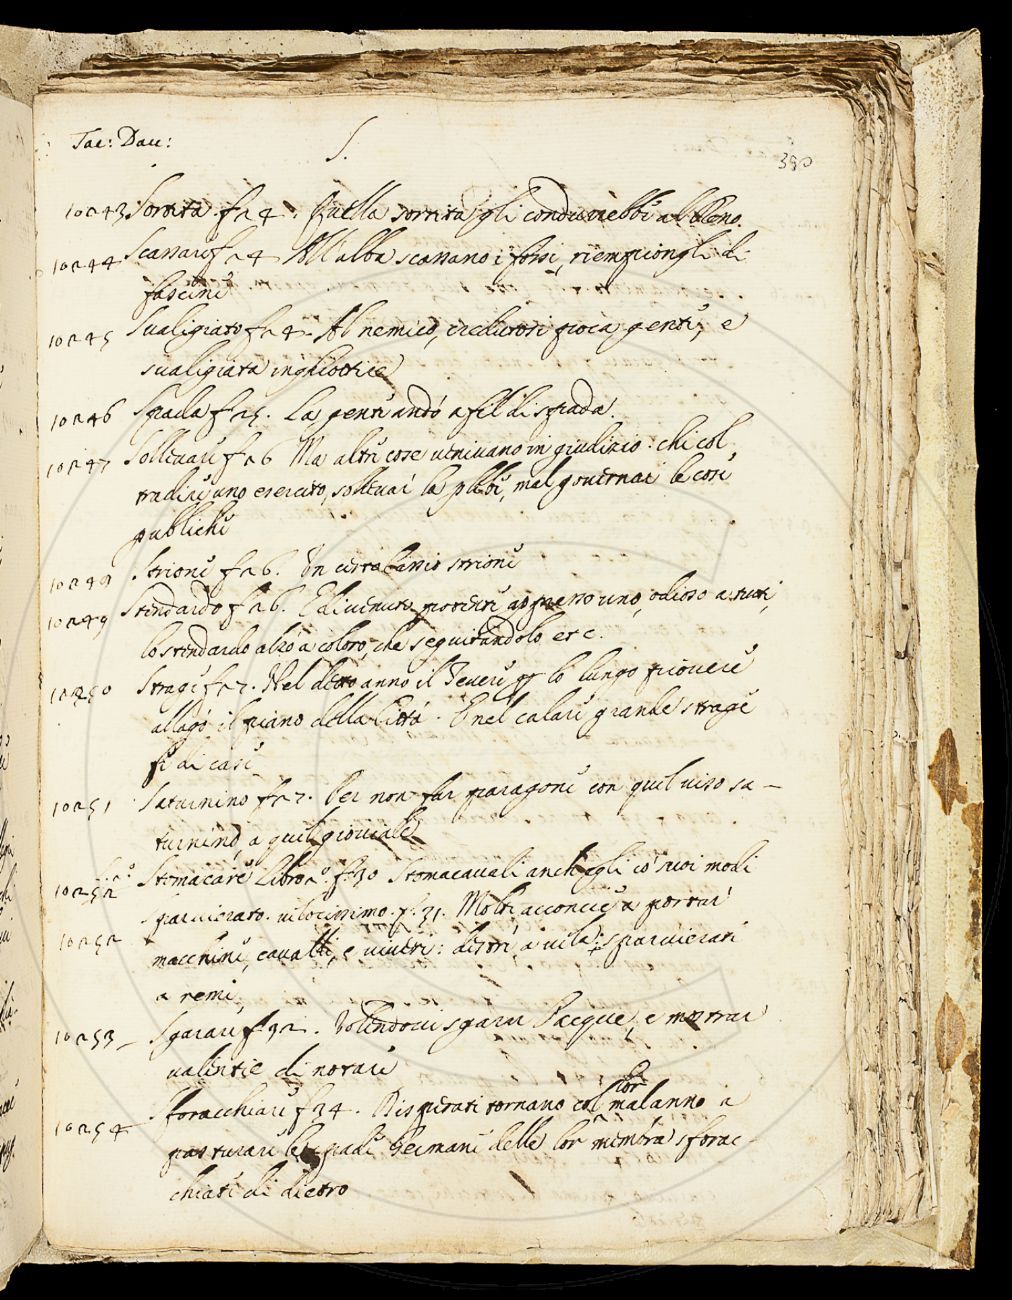 Tac: Dau:
S.
380
10243 Sortita f 24. Quella sortita gli condurrebbe al bleno.
10244 Scassare f 24 All'alba scassano i fossi, riempiongli di
fascine
10245 Sualigiato f 24. Al nemico, credutosi poca gente, e
sualigiata inghiottire
10246 Spada f 25. La gente andò a fil di spada.
10247 Solleuare f 26 Ma altre cose ueniuano in giudizio: chi col
tradire uno esercito, solleuar la plebe, mal gouernar le cose
publiche
10248 Strione f 26. strione
10249 Stendardo f 26. E diuenuto potente appresso uno, odioso a tutti,
lo stendardo alzò a coloro, che seguitandolo etc.
10250 Strage f 27. Nel detto anno il Teuere per lo lungo piouere
allagò il piano della Città. E nel calare grande strage
fu di case
10251 Saturnino f 27. Per non far paragone con quel uiso sa-
turnino, a quel giouiale
10252 Stomacare Libro 2° f. 30 Stomacauali anch'egli co' suoi modi
10252 Sparuierato. uelocissimo. f. 31. Molte acconcie a portar
macchine, caualli, e uiueri: destre a uela: sparuierate
a remi,
10253 Sgarare f 32. Volendoui sgarar l'acque, e mostrar
ualentie di notare
10254 Sforacchiare f 34. Disperati tornano col lor malanno a
pasturare le spade Germane delle lor membra sforac-
chiate di dietro